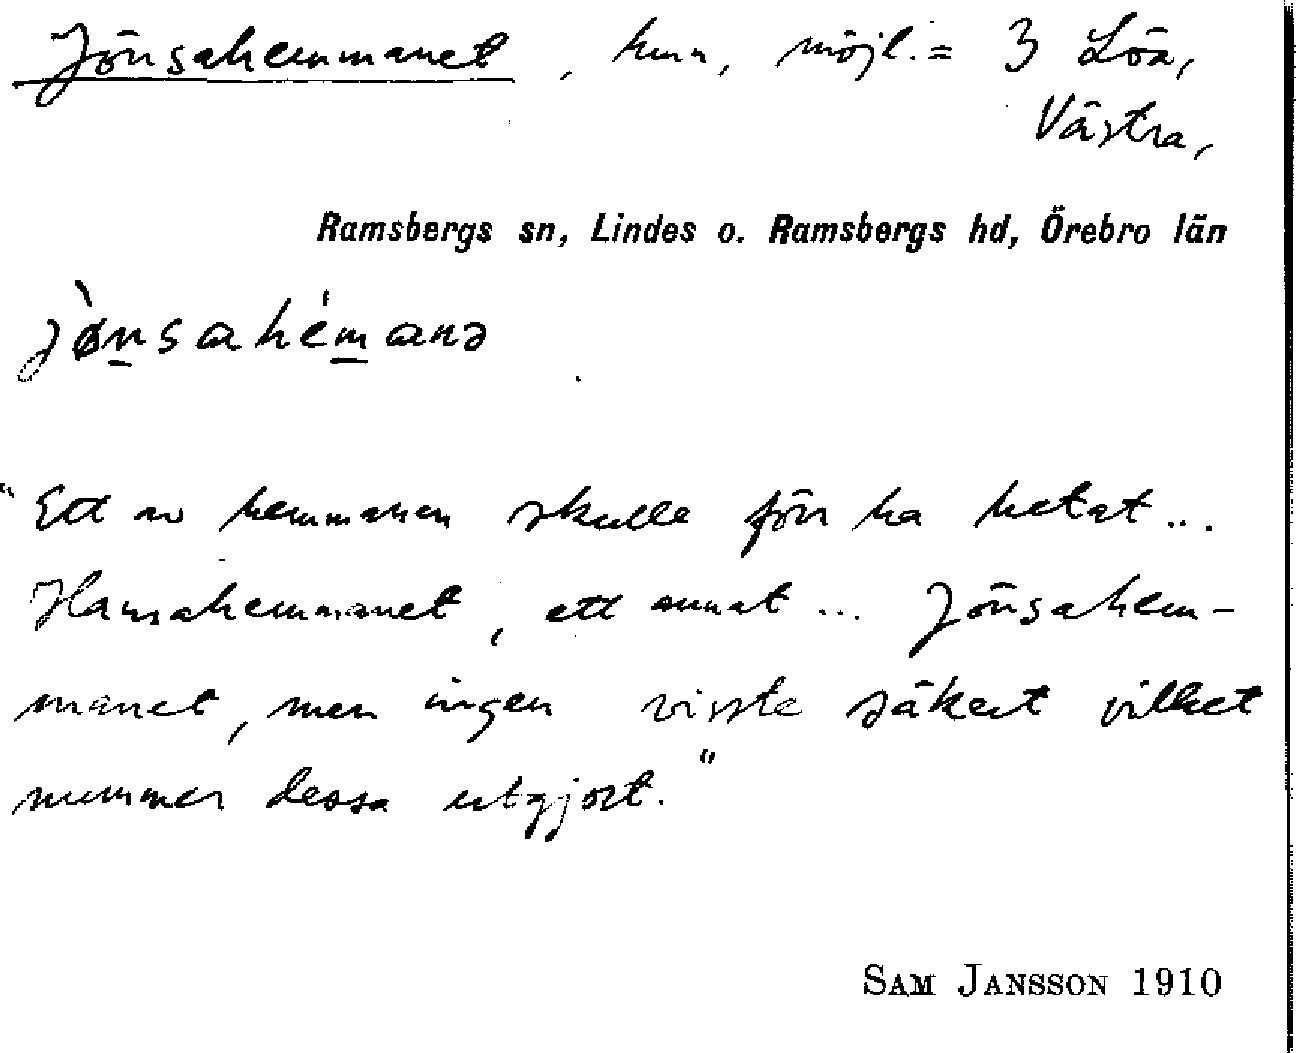 Jönsahemmanet, hmn, möjl. = 3 Löa,
Västra,
Ramsbergs sn, Lindes o. Ramsbergs hd, Örebro län
jø̀n̲sahém̲anə
"Ett av hemmanen skulle förr ha hetat...
Hansahemmanet, ett annat ... Jönsahem-
manet, men ingen visste säkert vilket
nummer dessa utgjort."
SAM JANSSON 1910